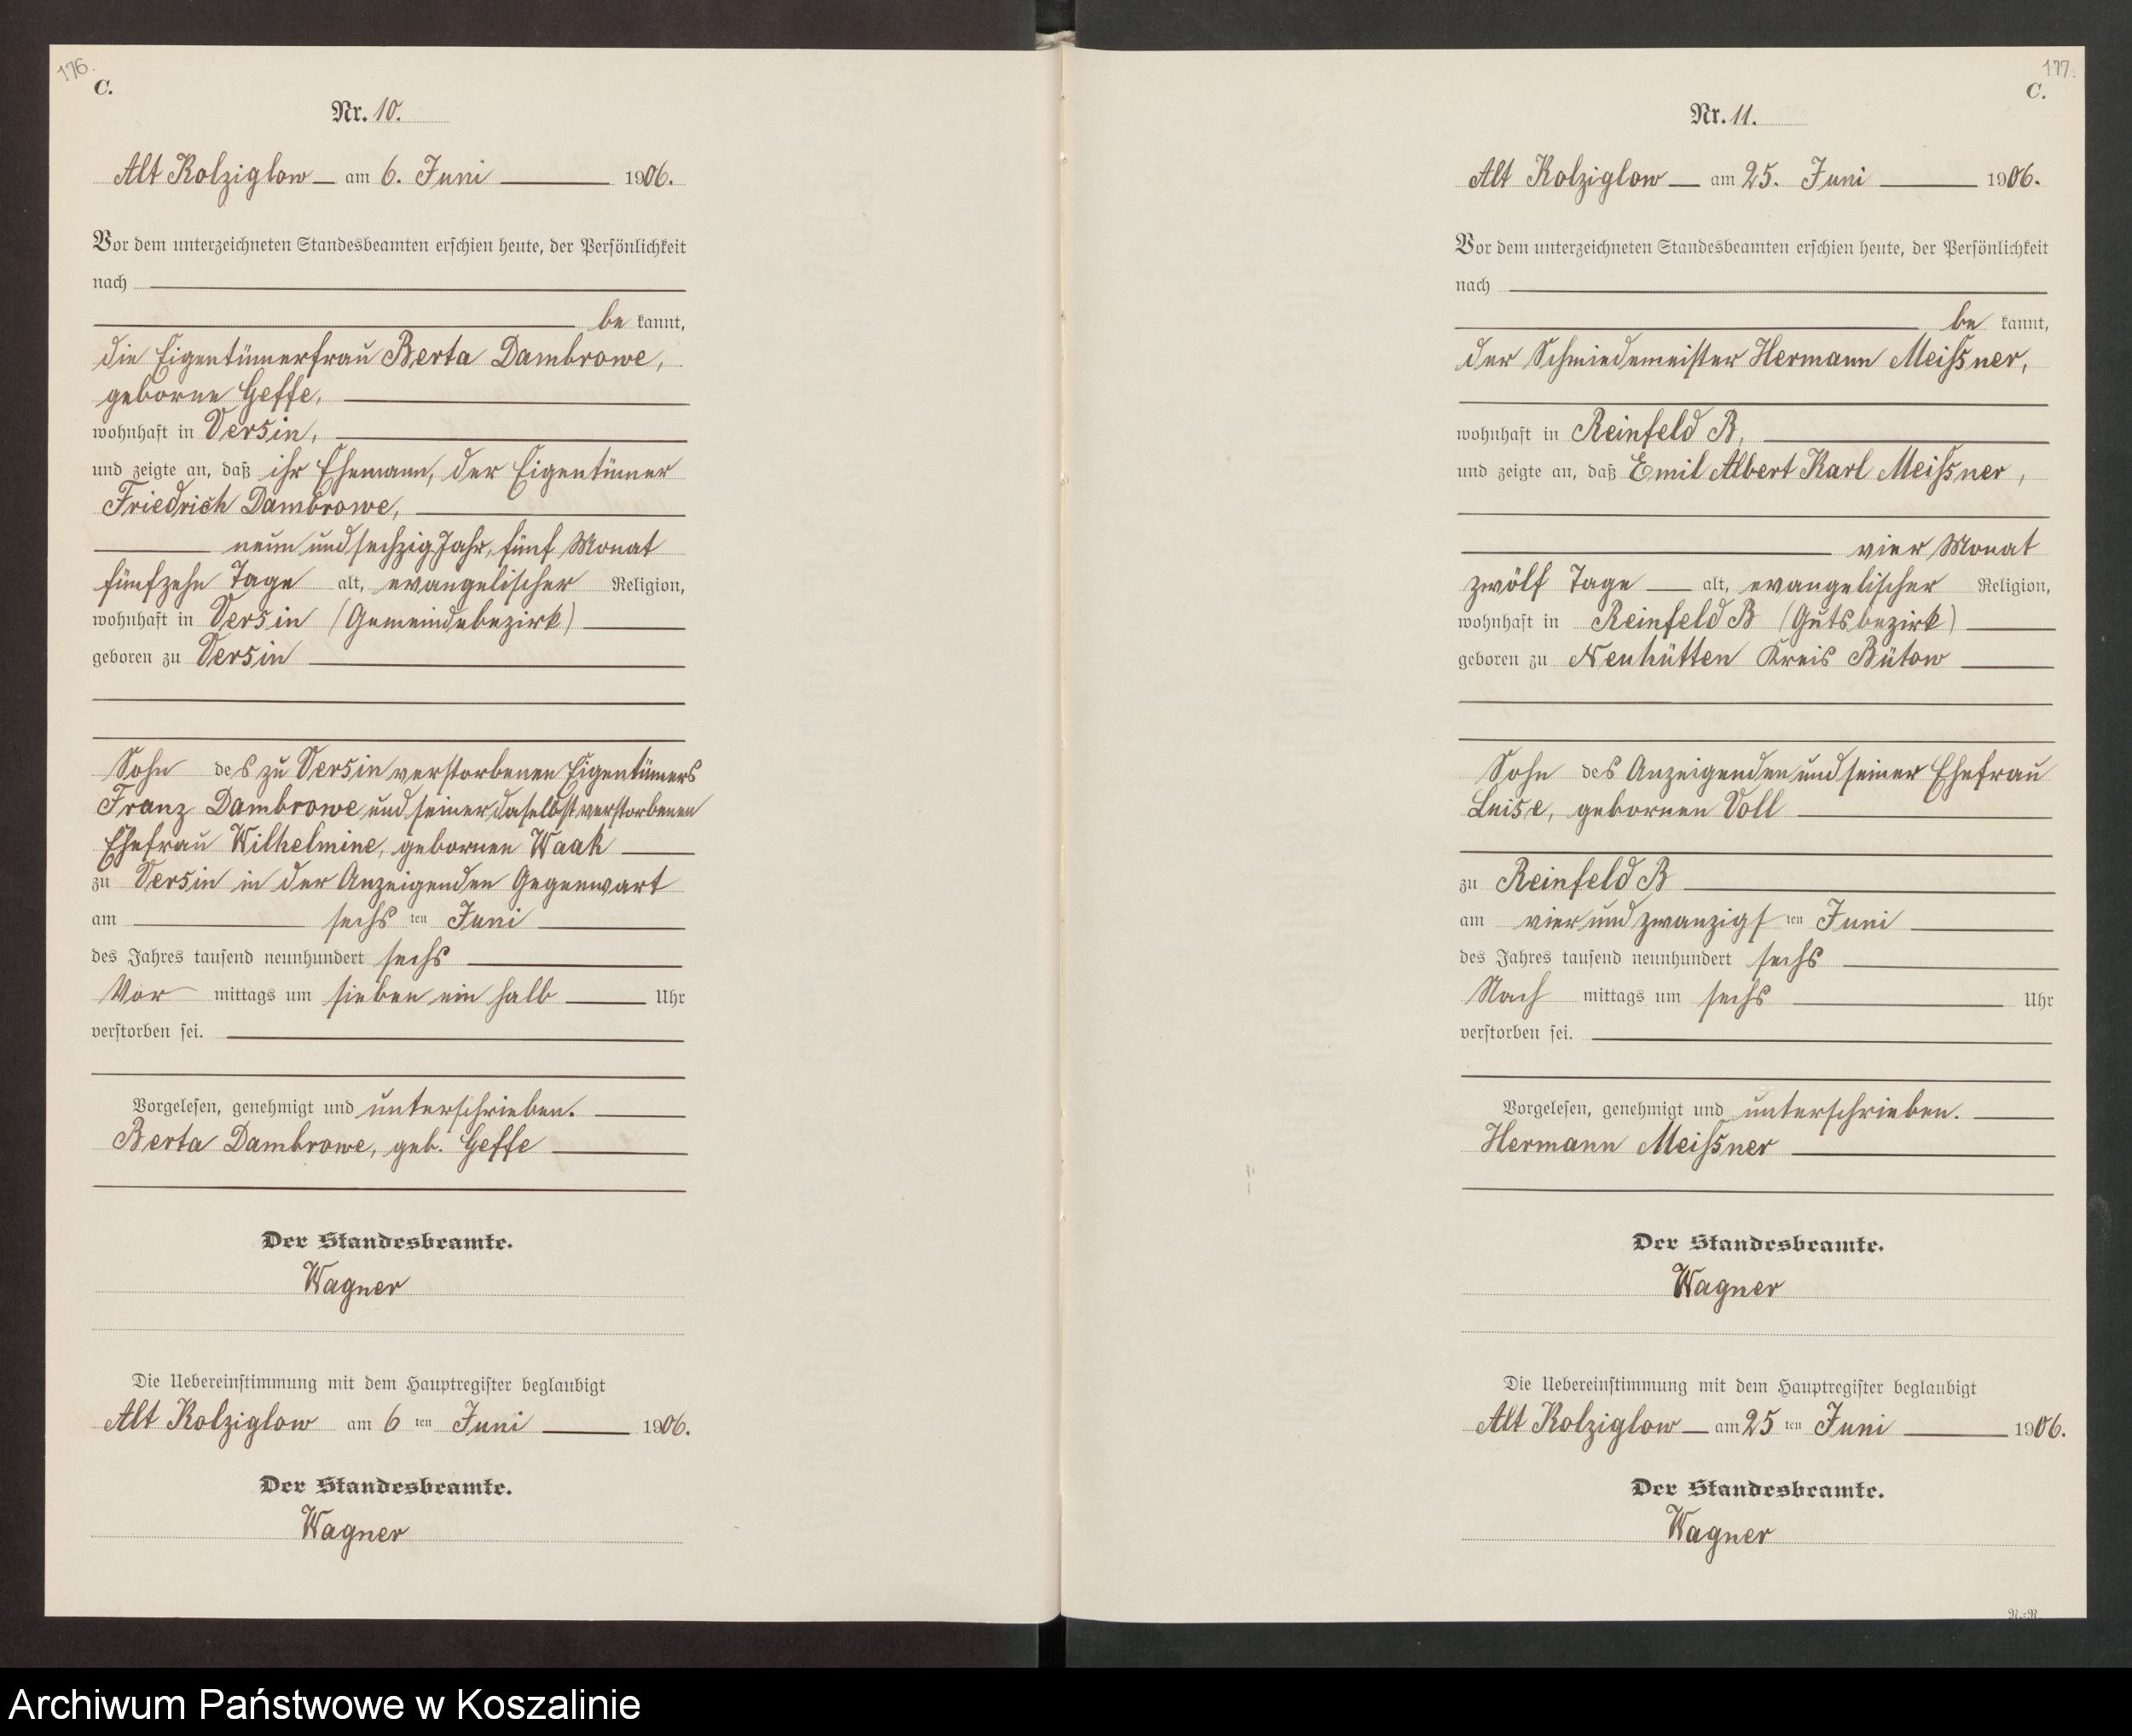 176.
C.
Nr. 10.
Alt Kolziglow am 6. Juni 1906.
Vor dem unterzeichneten Standesbeamten erschien heute, der Persönlichkeit
nach
be kannt,
die Eigentümerfrau Berta Dambrowe,
geborne Geffe,
wohnhaft in Versin,
und zeigte an, daß ihr Ehemann, der Eigentümer
Friedrich Dambrowe,
neun und sechzig Jahr, fünf Monat
fünfzehn Tage alt, evangelischer Religion,
wohnhaft in Versin (Gemeindebezirk)
geboren zu Versin
Sohn des zu Versin verstorbenen Eigentümers
Franz Dambrowe und seiner daselbst verstorbenen
Ehefrau Wilhelmine, gebornen Waak
zu Versin in der Anzeigenden Gegenwart
am sechs ten Juni
des Jahres tausend neunhundert sechs
Vor mittags um sieben ein halb Uhr
verstorben sei.
Vorgelesen, genehmigt und unterschrieben.
Berta Dambrowe, geb. Geffe
Der Standesbeamte.
Wagner
Die Uebereinstimmung mit dem Hauptregister beglaubigt
Alt Kolziglow am 6 ten Juni 1906.
Der Standesbeamte.
Wagner
177.
C.
Nr. 11.
Alt Kolziglow am 25. Juni 1906.
Vor dem unterzeichneten Standesbeamten erschien heute, der Persönlichkeit
nach
be kannt,
der Schmiedemeister Hermann Meissner,
wohnhaft in Reinfeld B,
und zeigte an, daß Emil Albert Karl Meissner,
vier Monat
zwölf Tage alt, evangelischer Religion,
wohnhaft in Reinfeld B (Gutsbezirk)
geboren zu Neuhütten Kreis Bütow
Sohn des Anzeigenden und seiner Ehefrau
Luise, gebornen Voll
zu Reinfeld B
am vier und zwanzigs ten Juni
des Jahres tausend neunhundert sechs
Nach mittags um sechs Uhr
verstorben sei.
Vorgelesen, genehmigt und unterschrieben.
Hermann Meissner
Der Standesbeamte.
Wagner
Die Uebereinstimmung mit dem Hauptregister beglaubigt
Alt Kolziglow am 25 ten Juni 1906.
Der Standesbeamte.
Wagner
Archiwum Państwowe w Koszalinie